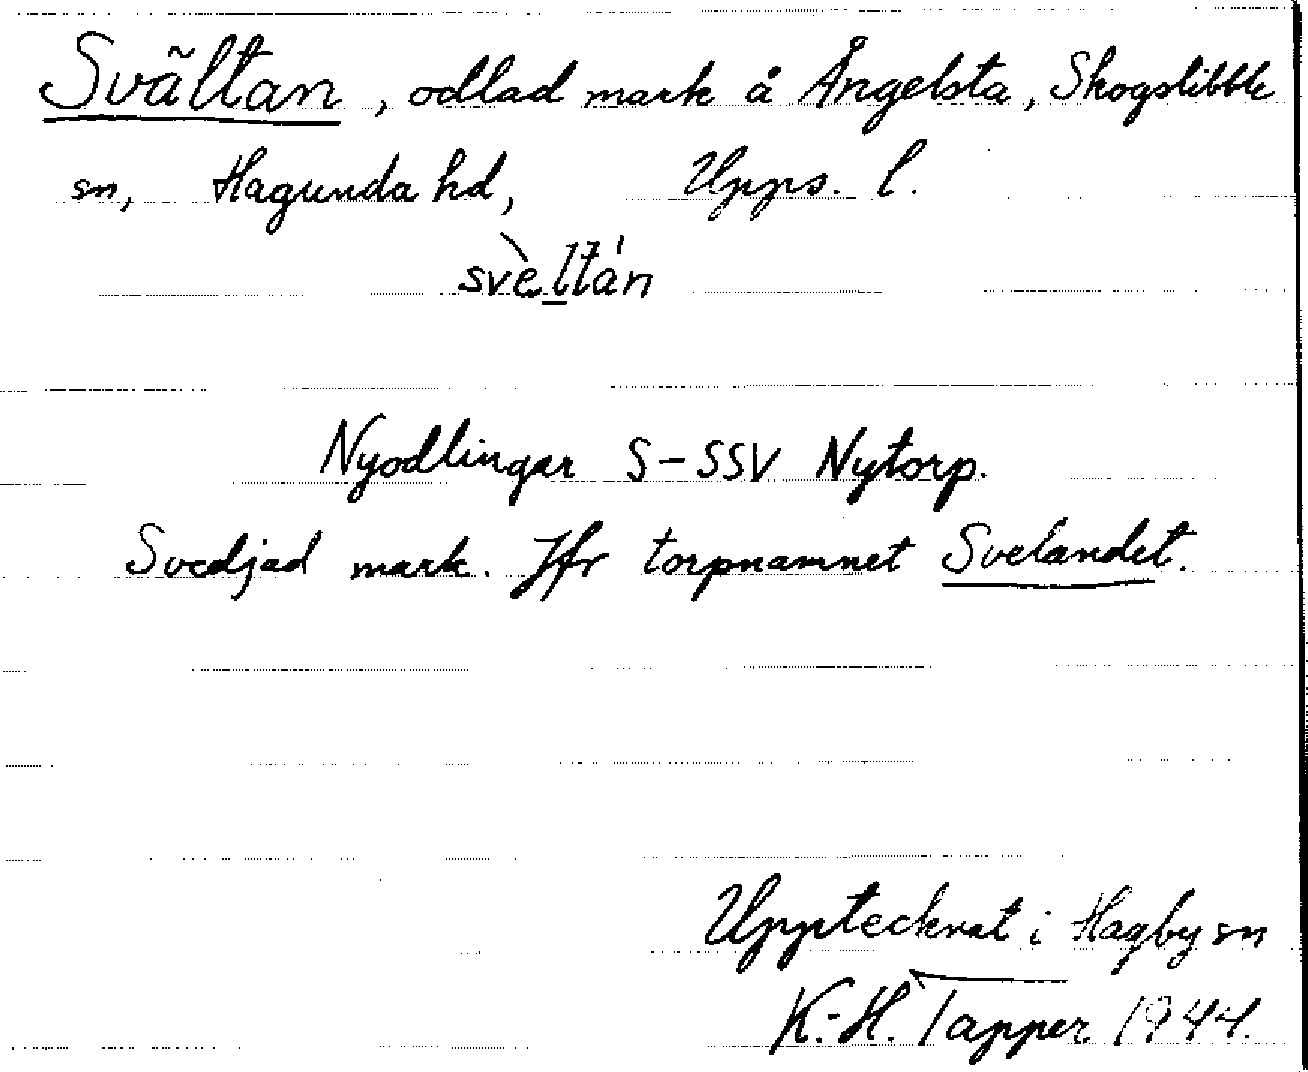 Svältan, odlad mark å Ångelsta, Skogstibble
sn, Hagunda hd, Upps. l.
svèltán
Nyodlingar S-SSV Nytorp.
Svedjad mark. Jfr torpnamnet Svelandet.
Upptecknat i Hagby sn
K.-H. Tapper 1944.